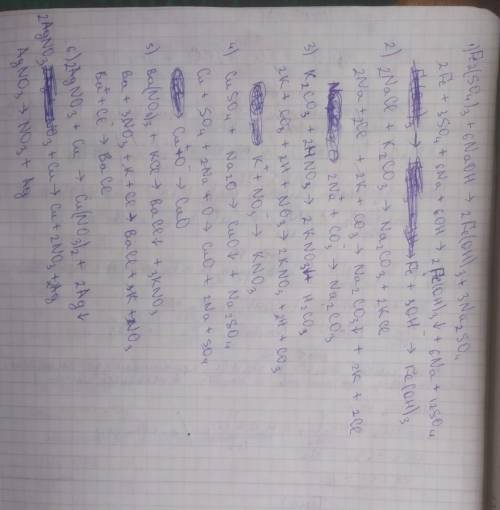 1) Fe2(SO4)3 + 6NaOH → 2Fe(OH)3 + 3Na2SO4
2Fe + 3SO4 + 6Na + 6OH → 2Fe(OH)3↓ + 6Na + 12SO4
Fe + 3OH⁻ → Fe(OH)3
2) 2NaCl + K2CO3 → Na2CO3 + 2KCl
2Na + 2Cl + 2K + CO3 → Na2CO3↓ + 2K + 2Cl
2Na⁺ + CO3⁻ → Na2CO3
3) K2CO3 + 2HNO3 → 2KNO3 + H2CO3
2K + CO3 + 2H + NO3 → 2KNO3 + 2H + CO3
K⁺ + NO3⁻ → KNO3
4) CuSO4 + Na2O → CuO↓ + Na2SO4
Cu + SO4 + 2Na + O → CuO + 2Na + SO4
Cu⁺ + O⁻ → CuO
5) Ba(NO3)2 + KCl → BaCl↓ + 3KNO3
Ba + 3NO3 + K + Cl → BaCl + 3K + 2NO3
Ba⁺ + Cl → BaCl
6) 2AgNO3 + Cu → Cu(NO3)2 + 2Ag↓
2AgNO3 + Cu → Cu + 2NO3 + 2Ag
AgNO3 → NO3 + Ag